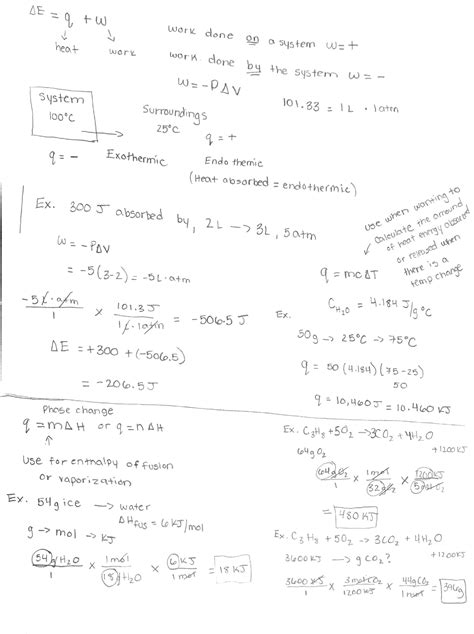 ΔE = q + w
↓ ↓
heat work
work done on a system w = +
work done by the system w = -
w = -PΔV
101.33 = 1L · 1atm
System
100°C
Surroundings
25°C
q = +
q = - Exothermic
Endothemic
(Heat absorbed = endothermic)
Ex. 300 J absorbed by, 2L → 3L, 5atm
w = -PΔV
= -5(3-2) = -5L·atm
-5L·atm/1 × 101.3J/1L·1atm = -506.5 J
ΔE = +300 + (-506.5)
= -206.5 J
use when wanting to
calculate the amount
of heat energy absorbed
or released when
there is a
temp change
q = mcΔT
Ex. C H₂O = 4.184 J/g°C
50g → 25°C → 75°C
q = 50(4.184)(75-25)
50
q = 10,460J = 10.460 KJ
Phase change
q = mΔH or q = nΔH
↑
Use for enthalpy of fusion
or vaporization
Ex. 54g ice → water
ΔHfus = 6 KJ/mol
g → mol → KJ
54g H₂O/1 × 1mol/18g H₂O × 6KJ/1mol = 18 KJ
Ex. C₃H₈ + 5O₂ → 3CO₂ + 4H₂O
+1200KJ
64g O₂
64g O₂/1 × 1mol/32g O₂ × 1200KJ/5 mol O₂
= 480 KJ
Ex. C₃H₈ + 5O₂ → 3CO₂ + 4H₂O
+1200KJ
3600KJ → g CO₂?
3600 KJ/1 × 3molCO₂/1200KJ × 44gCO₂/1mol = 396g